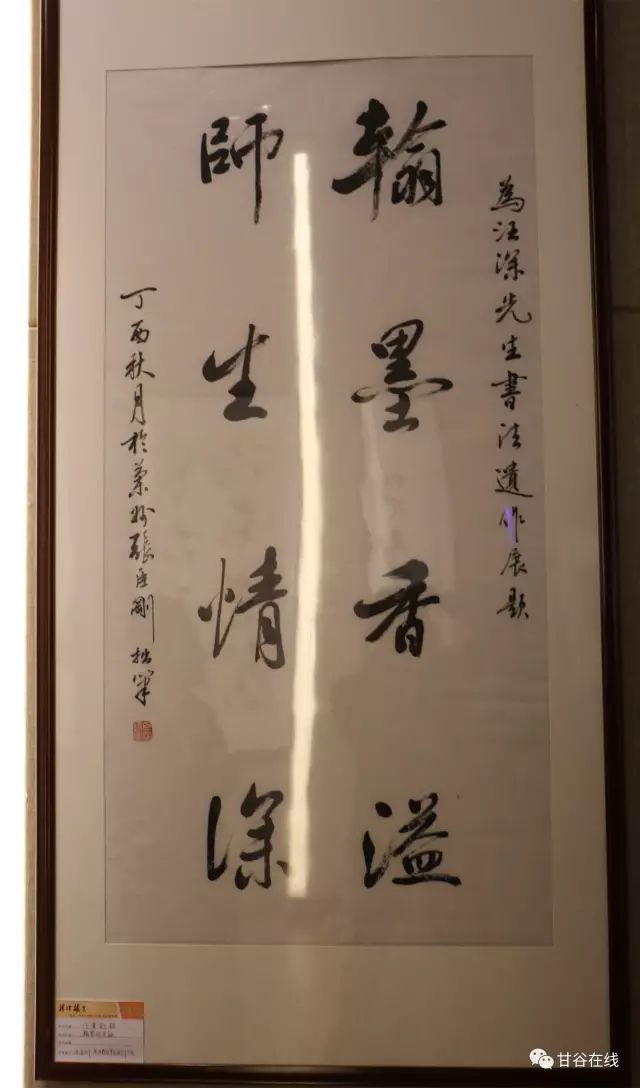 為汪深先生書法遺作展題
翰墨香溢
師生情深
丁酉秋月於蘭州張臣剛拙筆
甘谷在线